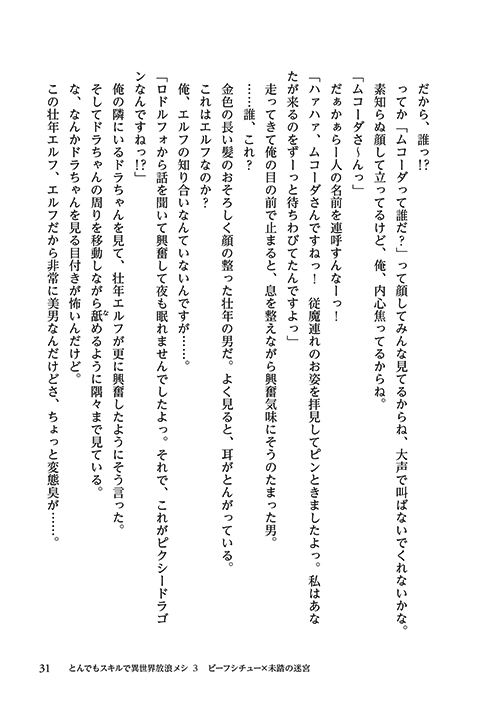 だから、誰っ!?
ってか「ムコーダって誰だ?」って顔してみんな見てるからね、大声で叫ばないでくれないかな。
素知らぬ顔して立ってるけど、俺、内心焦ってるからね。
「ムコーダさ〜んっ」
だぁかぁらー人の名前を連呼すんなーっ!
「ハァハァ、ムコーダさんですねっ! 従魔連れのお姿を拝見してピンときましたよっ。私はあな
たが来るのをずーっと待ちわびてたんですよっ」
走ってきて俺の目の前で止まると、息を整えながら興奮気味にそうのたまった男。
……誰、これ?
金色の長い髪のおそろしく顔の整った壮年の男だ。よく見ると、耳がとんがっている。
これはエルフなのか?
俺、エルフの知り合いなんていないんですが……。
「ロドルフォから話を聞いて興奮して夜も眠れませんでしたよっ。それで、これがピクシードラゴ
ンなんですねっ!?」
俺の隣にいるドラちゃんを見て、壮年エルフが更に興奮したようにそう言った。
そしてドラちゃんの周りを移動しながら舐めるように隅々まで見ている。
な、なんかドラちゃんを見る目付きが怖いんだけど。
この壮年エルフ、エルフだから非常に美男なんだけどさ、ちょっと変態臭が……。
31 とんでもスキルで異世界放浪メシ 3 ビーフシチュー×未踏の迷宮